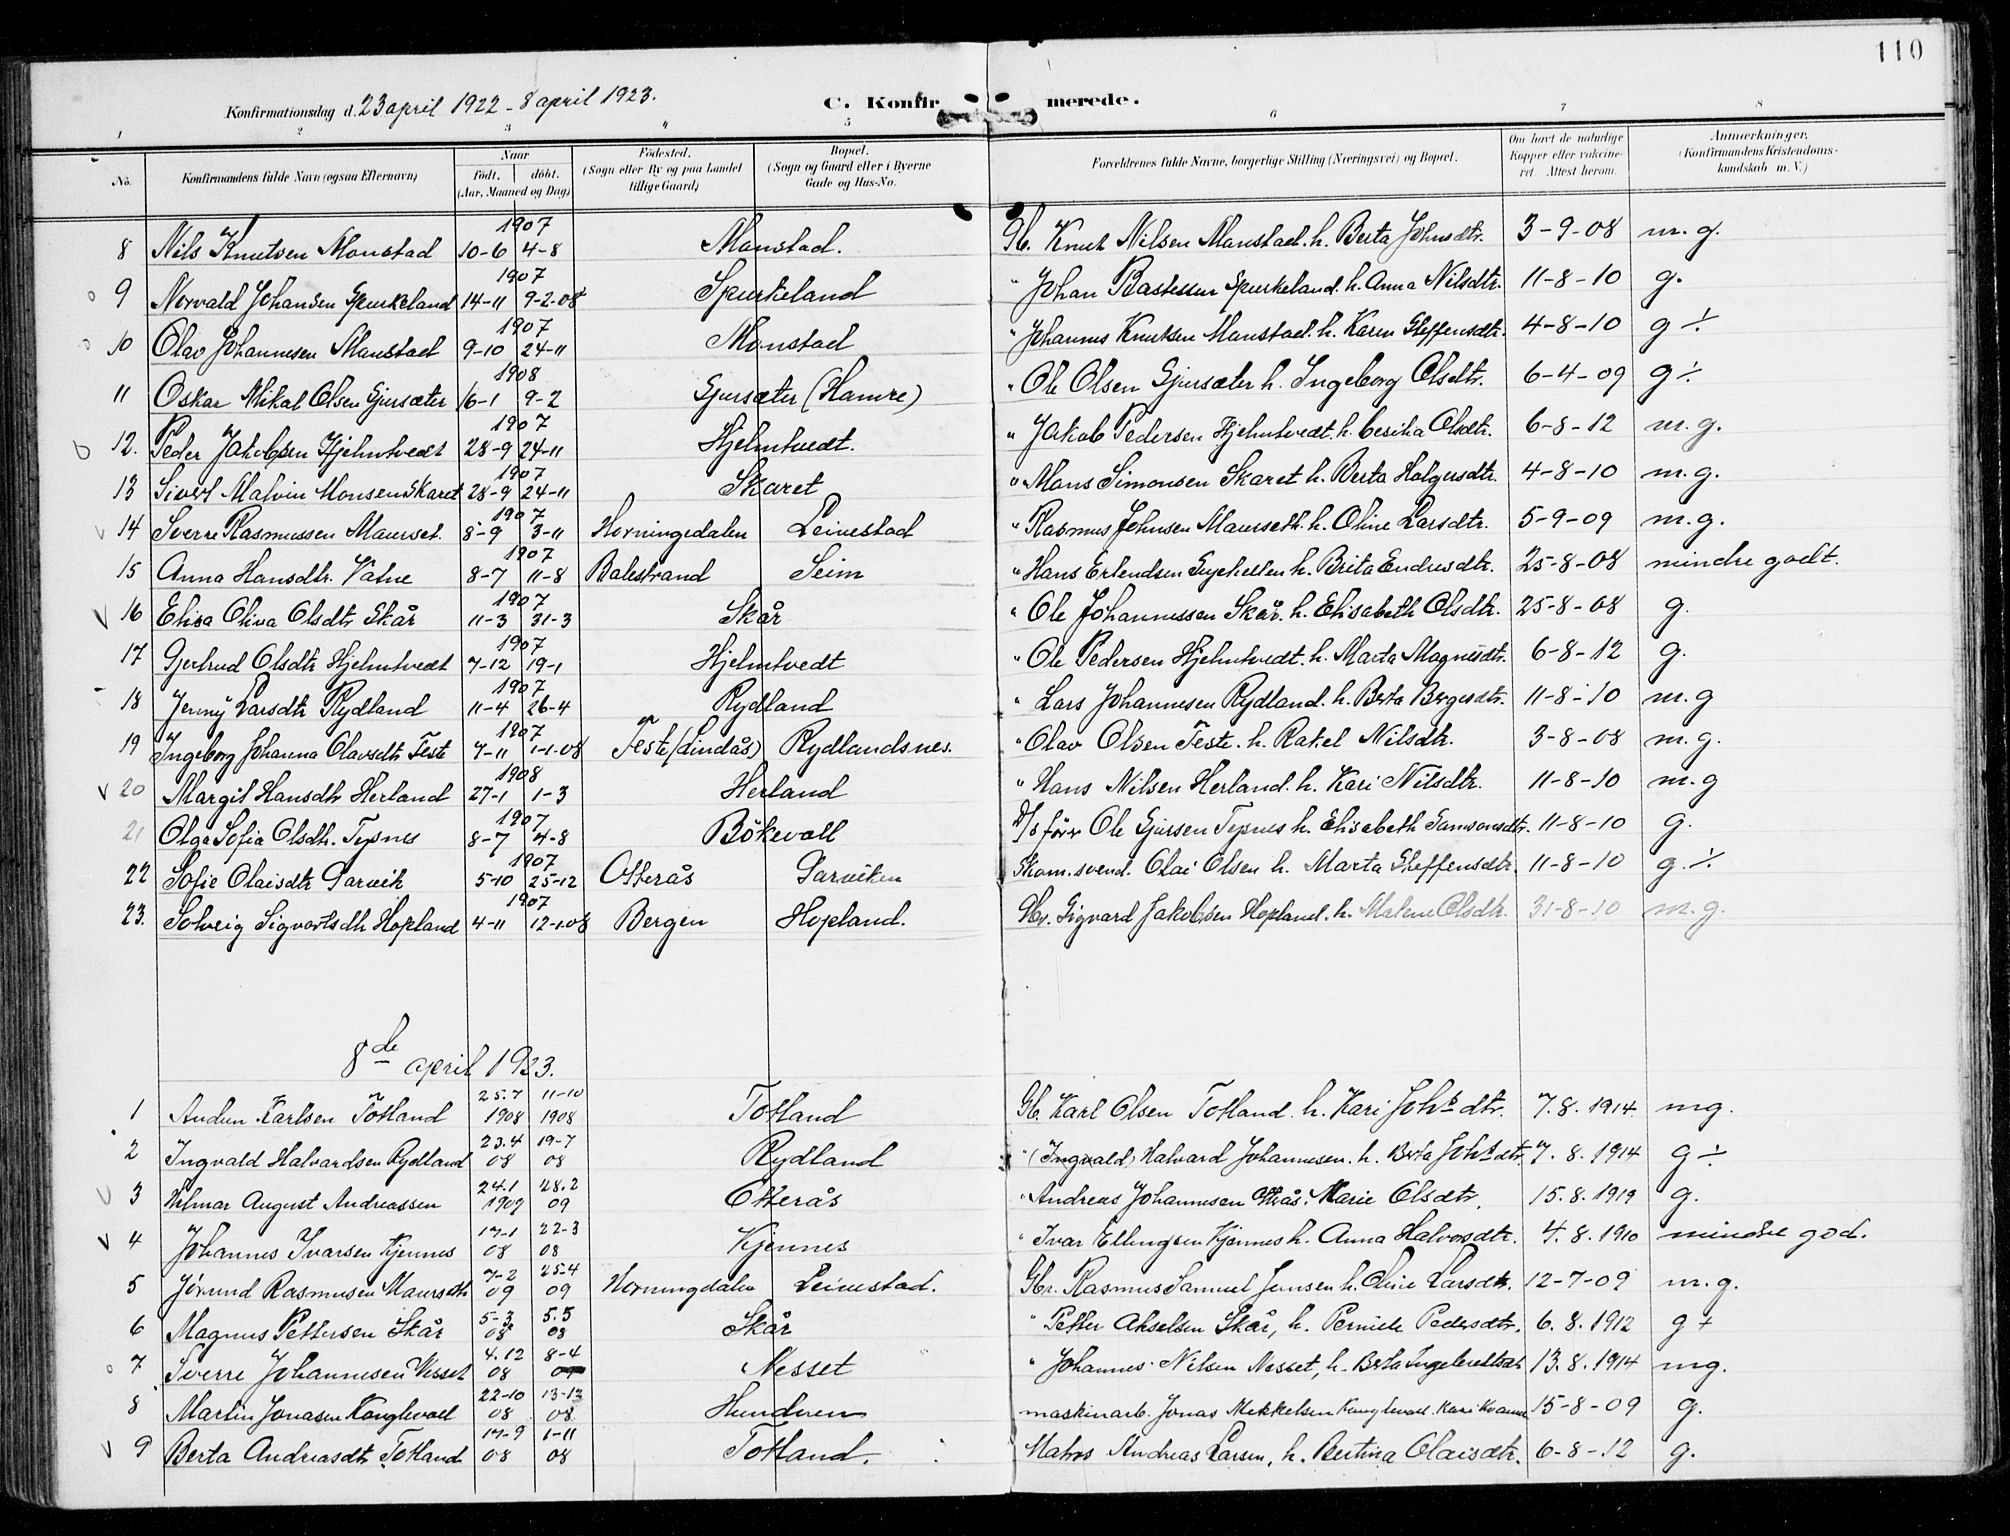 110
Konfirmationsdag d. 23 april 1922 - 8 april 1923. C. Konfirmerede.
1 2 3 " 5 6 7 8
No. Konfirmandens fulde Navn (ogsaa Efternavn) Naar født. døbt. (Aar, Maaned og Dag) Fødested. (Sogn eller By og paa Landet tillige Gaard) Bopæl. (Sogn og Gaard eller i Byerne Gade og Hus-No. Forældrenes fulde Navne, borgerlige Stilling (Næringsvei) og Bopæl. Om havt de naturlige Kopper eller vakcineret. Attest herom. Anmærkninger. (Konfirmandens Kristendomskundskab m. V.)
8 Nils Knutsen Monstad 1907 10-6 4-8 Manstad. Gb. Knut Nilsen Manstad. h. Berta Johnsdtr. 3-9-08 m.g.
9 Norvald Johansen Spurkeland 1907 14-11 9-2-08 Spurkeland " Johan Bastesen Spurkeland. h. Anna Nilsdtr. 11-8-10 g.
10 Olav Johannesen Manstad 1907 9-10 24-11 Monstad " Johannes Knutsen Manstad. h. Karen Steffensdtr. 4-8-10 g ÷
11 Oskar Mikal Olsen Gjursæter 1908 16-1 9-2 Gjursæter (Hamre) " Ole Olsen Gjursæter h. Ingeborg Olsdtr. 6-4-09 g ÷
12. Peder Jakobsen Hjelmtvedt 1907 28-9 24-11 Hjelmtvedt. " Jakob Pedersen Hjelmtvedt. h. Cesilia Olsdtr. 6-8-12 m.g.
13 Sivert Malvin Monsen Skaret 1907 28-9 24-11 Skaret " Mons Simonsen Skaret h. Berta Holgersdtr. 4-8-10 m.g.
14 Sverre Rasmussen Maurset. 1907 8-9 3-11 Horningsdalen Leivestad " Rasmus Johnsen Maurseth. h. Oline Larsdtr. 5-9-09 m.g.
15 Anna Hansdtr. Vatne 1907 8-7 11-8 Balestrand Seim " Hans Erlendsen h. Brita Endresdtr. 25-8-08 mindre godt.
16 Elisa Oliva Olsdtr Skår 1907 11-3 31-3 Skår " Ole Johannessen Skår. h. Elisabeth Olsdtr. 25-8-08 g.
17 Gjertrud Olsdtr Hjelmtvedt 1907 7-12 19-1 Hjelmtvedt " Ole Pedersen Hjelmtvedt. h. Marta Magnesdtr. 6-8-12 g.
18 Jenny Larsdtr Rydland 1907 11-4 26-4 Rydland " Lars Johannesen Rydland. h. Berta Bergesdtr. 11-8-10 m.g
19 Ingeborg Johanna Olavsdtr Feste 1907 7-11 1-1-08 Feste (Lindås) Rydlandsnes. " Olav Olsen Feste. h. Rakel Nilsdtr. 3-8-08 m.g.
20 Margit Hansdtr Herland 1908 27-1 1-3 Herland " Hans Nilsen Herland. h. Kari Nilsdtr. 11-8-10 m.g
21 Olga Sofia Olsdtr. Tepnes 1907 8-7 4-8 Bökevoll D/s förer Ole Gjersen Tepnes h. Elisabeth Samsonsdtr. 11-8-10 g.
22 Sofie Olaisdtr Garvik 1907 5-10 25-12 Otterås Garviken Skom.svend. Olai Olsen h. Marta Steffensdtr. 11-8-10 g. ÷
23. Solveig Sigvartsdtr Hopland 1907 4-11 12-1.08 Bergen Hopland. Gbr. Sigvard Jakobsen Hopland. h. Malene Olsdtr. 31-8-10 m.g.
8de april 1923.
1 Audun Karlsen Totland 25.7 1908 11-10 1908 Totland Gb. Karl Olsen Totland. h. Kari Johsdtr. 7.8.1914. mg.
2 Ingvald Halvardsen Rydland 23.4 08 19-7 08 Rydland " (Ingvald) Halvard Johannesen. h. Berta Johsdtr. 7.8.1914 g ÷
3 Helmar August Andreassen 24.1 1909 28.2 09 Otterås " Andreas Johannesen Otterås. Marie Olsdtr. 15.8.1919 g.
4 Johannes Ivarsen Kjennes 17-1 08 22-3 08 Kjennes " Ivar Ellingsen Kjennes h. Anna Halvorsdtr. 4.8.1910 mindre god.
5 Jörund Rasmusen Maurseth 7-2 09 25-4 09 Horningdalen Leivestad. Gbr. Rasmus Samuel Jensen h. Oline Larsdtr. 12-7-09 m.g.
6 Magnus Pettersen Skår 5-3 08 5.5 08 Skår " Petter Akselsen Skår, h. Pernele Pedersdtr. 6.8.1912 g +
7 Sverre Johannesen Nesset 4.12 08 8-4 Nesset " Johannes Nilsen Nesset, h. Berta Ingebrettsdt 13.8.1914 mg.
8 Martin Jonasen Kauglevoll 22-10 08 13-12 08 Hundven maskinarb. Jonas Mekkelsen Kauglevoll. Kari Kvamme 15-8-09 g.
9 Berta Andreasdtr Totland 17-9 08 1-11 08 Totland. Matros Andreas Larsen, h. Bertina Olaisdtr. 6-8-12 g.